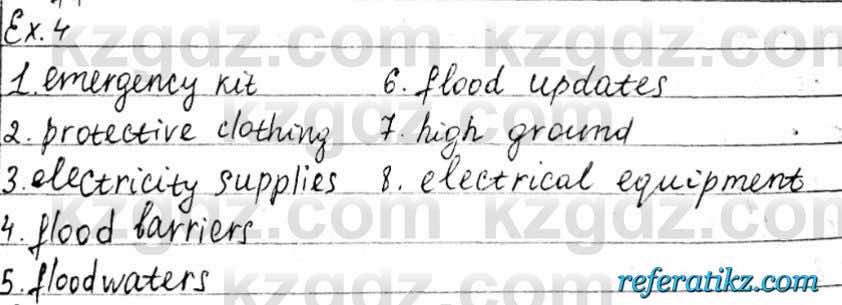 Ex. 4
1. emergency kit
2. protective clothing
3. electricity supplies
4. flood barriers
5. floodwaters
6. flood updates
7. high ground
8. electrical equipment
kzgdz.com kzgdz.com
kzgdz.com
kzgdz.com kzgdz.com
referatikz.com